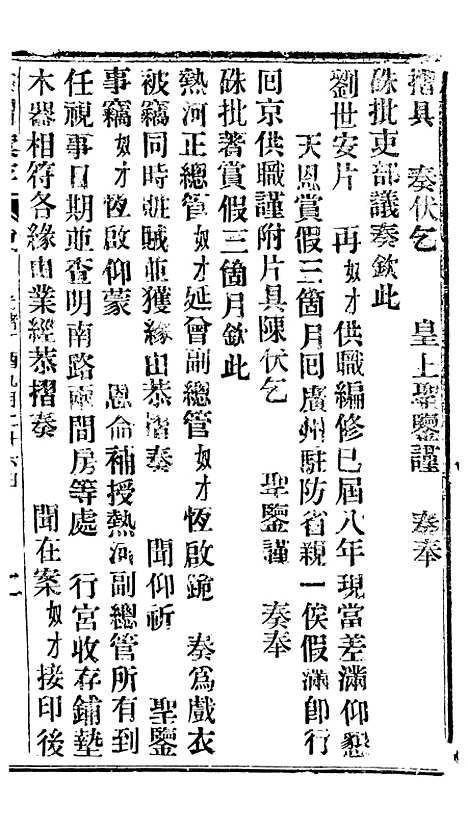 摺具　奏伏乞　皇上聖鑒謹　奏奉
硃批吏部議奏欽此
劉世安片　再奴才供職編修已屆八年現當差滿仰懇
天恩賞假三箇月回廣州駐防省親一俟假滿卽行
回京供職謹附片具陳伏乞　聖鑒謹　奏奉
硃批著賞假三箇月欽此
熱河正總管奴才延曾副總管奴才恆啟跪　奏爲戲衣
被竊同時賍賊並獲緣由恭摺奏　聞仰祈　聖鑒
事竊奴才恆啟仰蒙　恩侖補授熱河副總管所有到
任視事日期並查明南路兩間房等處　行宮收存鋪墊
木器相符各緣由業經恭摺奏　聞在案奴才接印後